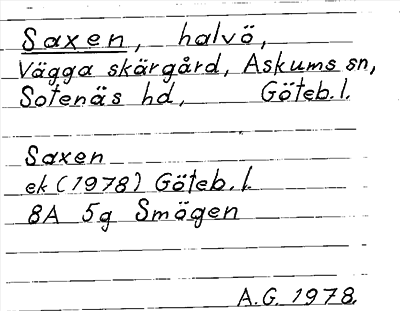 Saxen, halvö,
Vägga skärgård, Askums sn,
Sotenäs hd, Göteb. l.
Saxen
ek (1978) Göteb. l.
8A 5g Smögen
A.G. 1978.